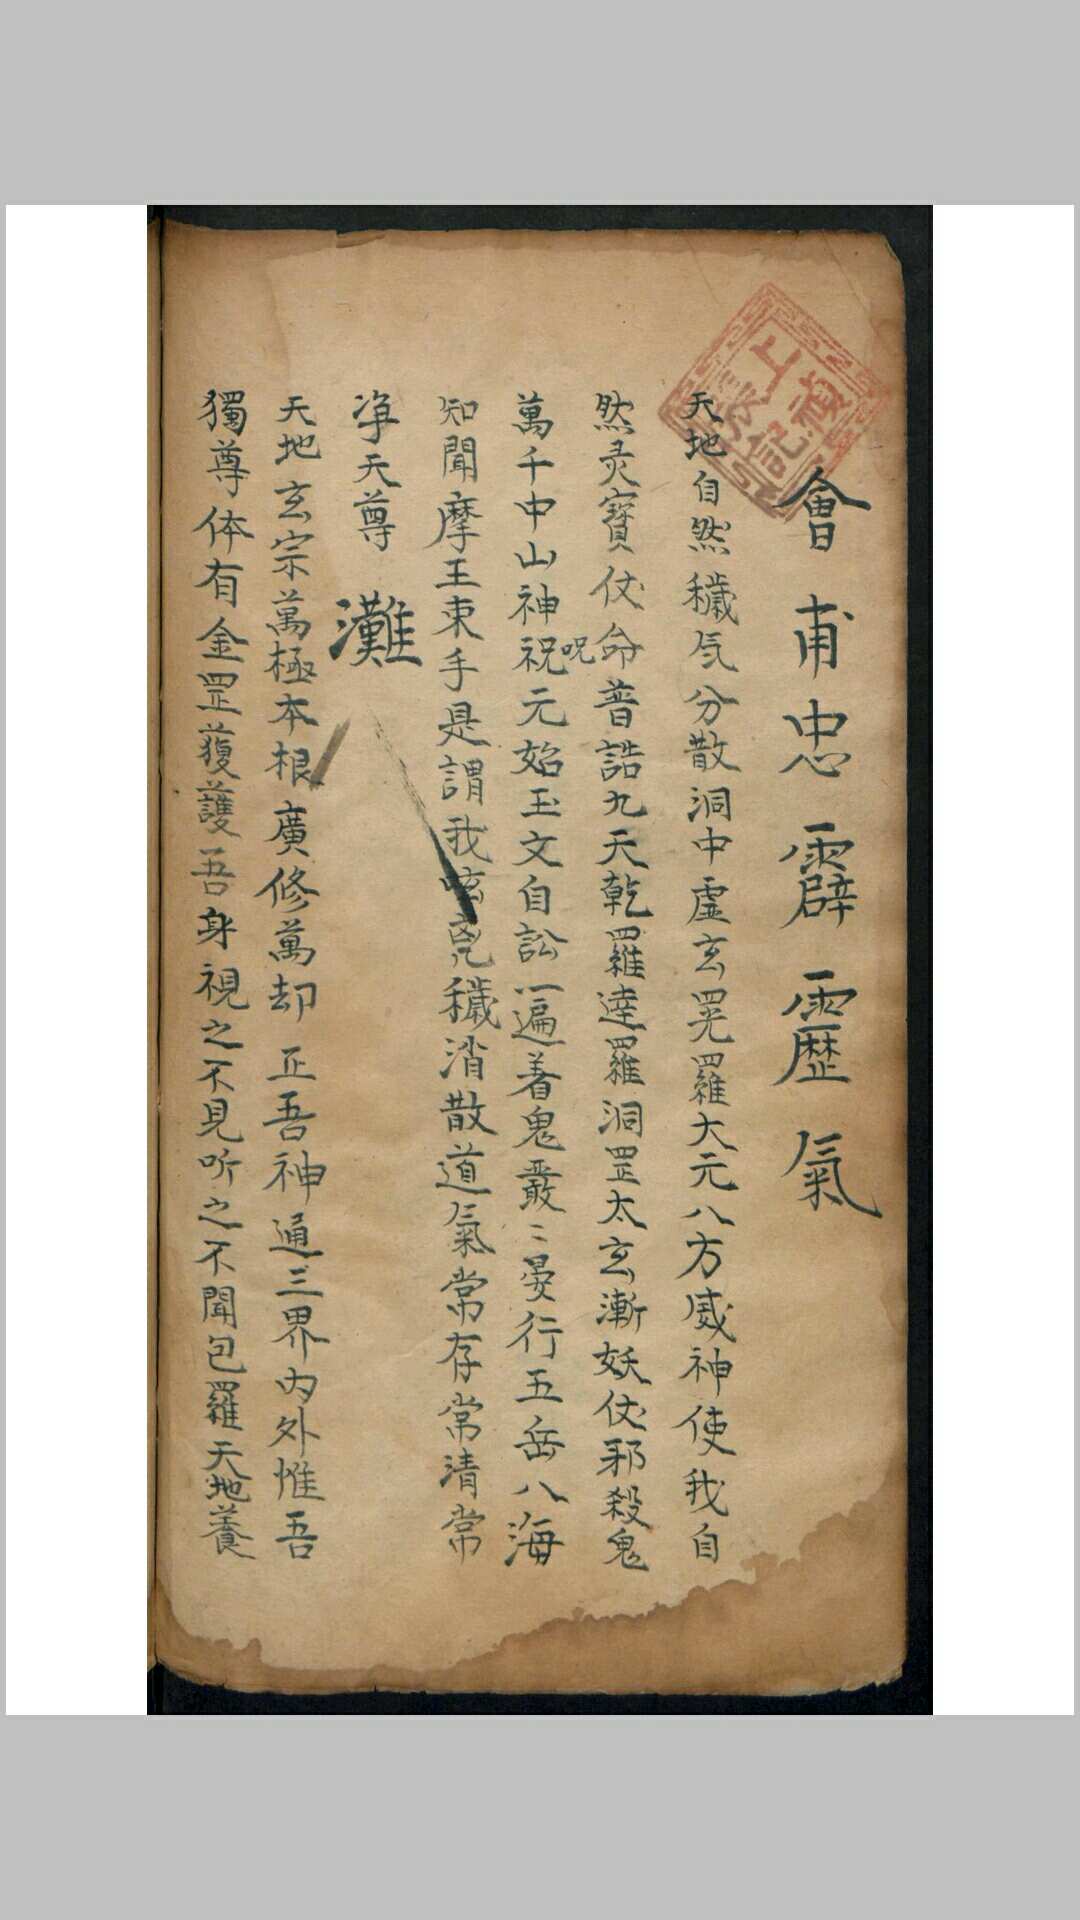 會甫忠霹靂氣
天地自然穢気分散洞中虛玄晃羅大元八方威神使我自
然灵寶仗命普誥九天乾羅達羅洞罡太玄漸妖伏邪殺鬼
萬千中山神祝呪元始玉文自訟一遍着鬼嚴〻晏行五岳八海
知聞摩王束手是謂我咳兇穢消散道氣常存常清常
净天尊 灘
天地玄宗萬極本根廣修萬却正吾神通三界內外惟吾
獨尊体有金罡護護吾身視之不見听之不聞包羅天地養
上
記